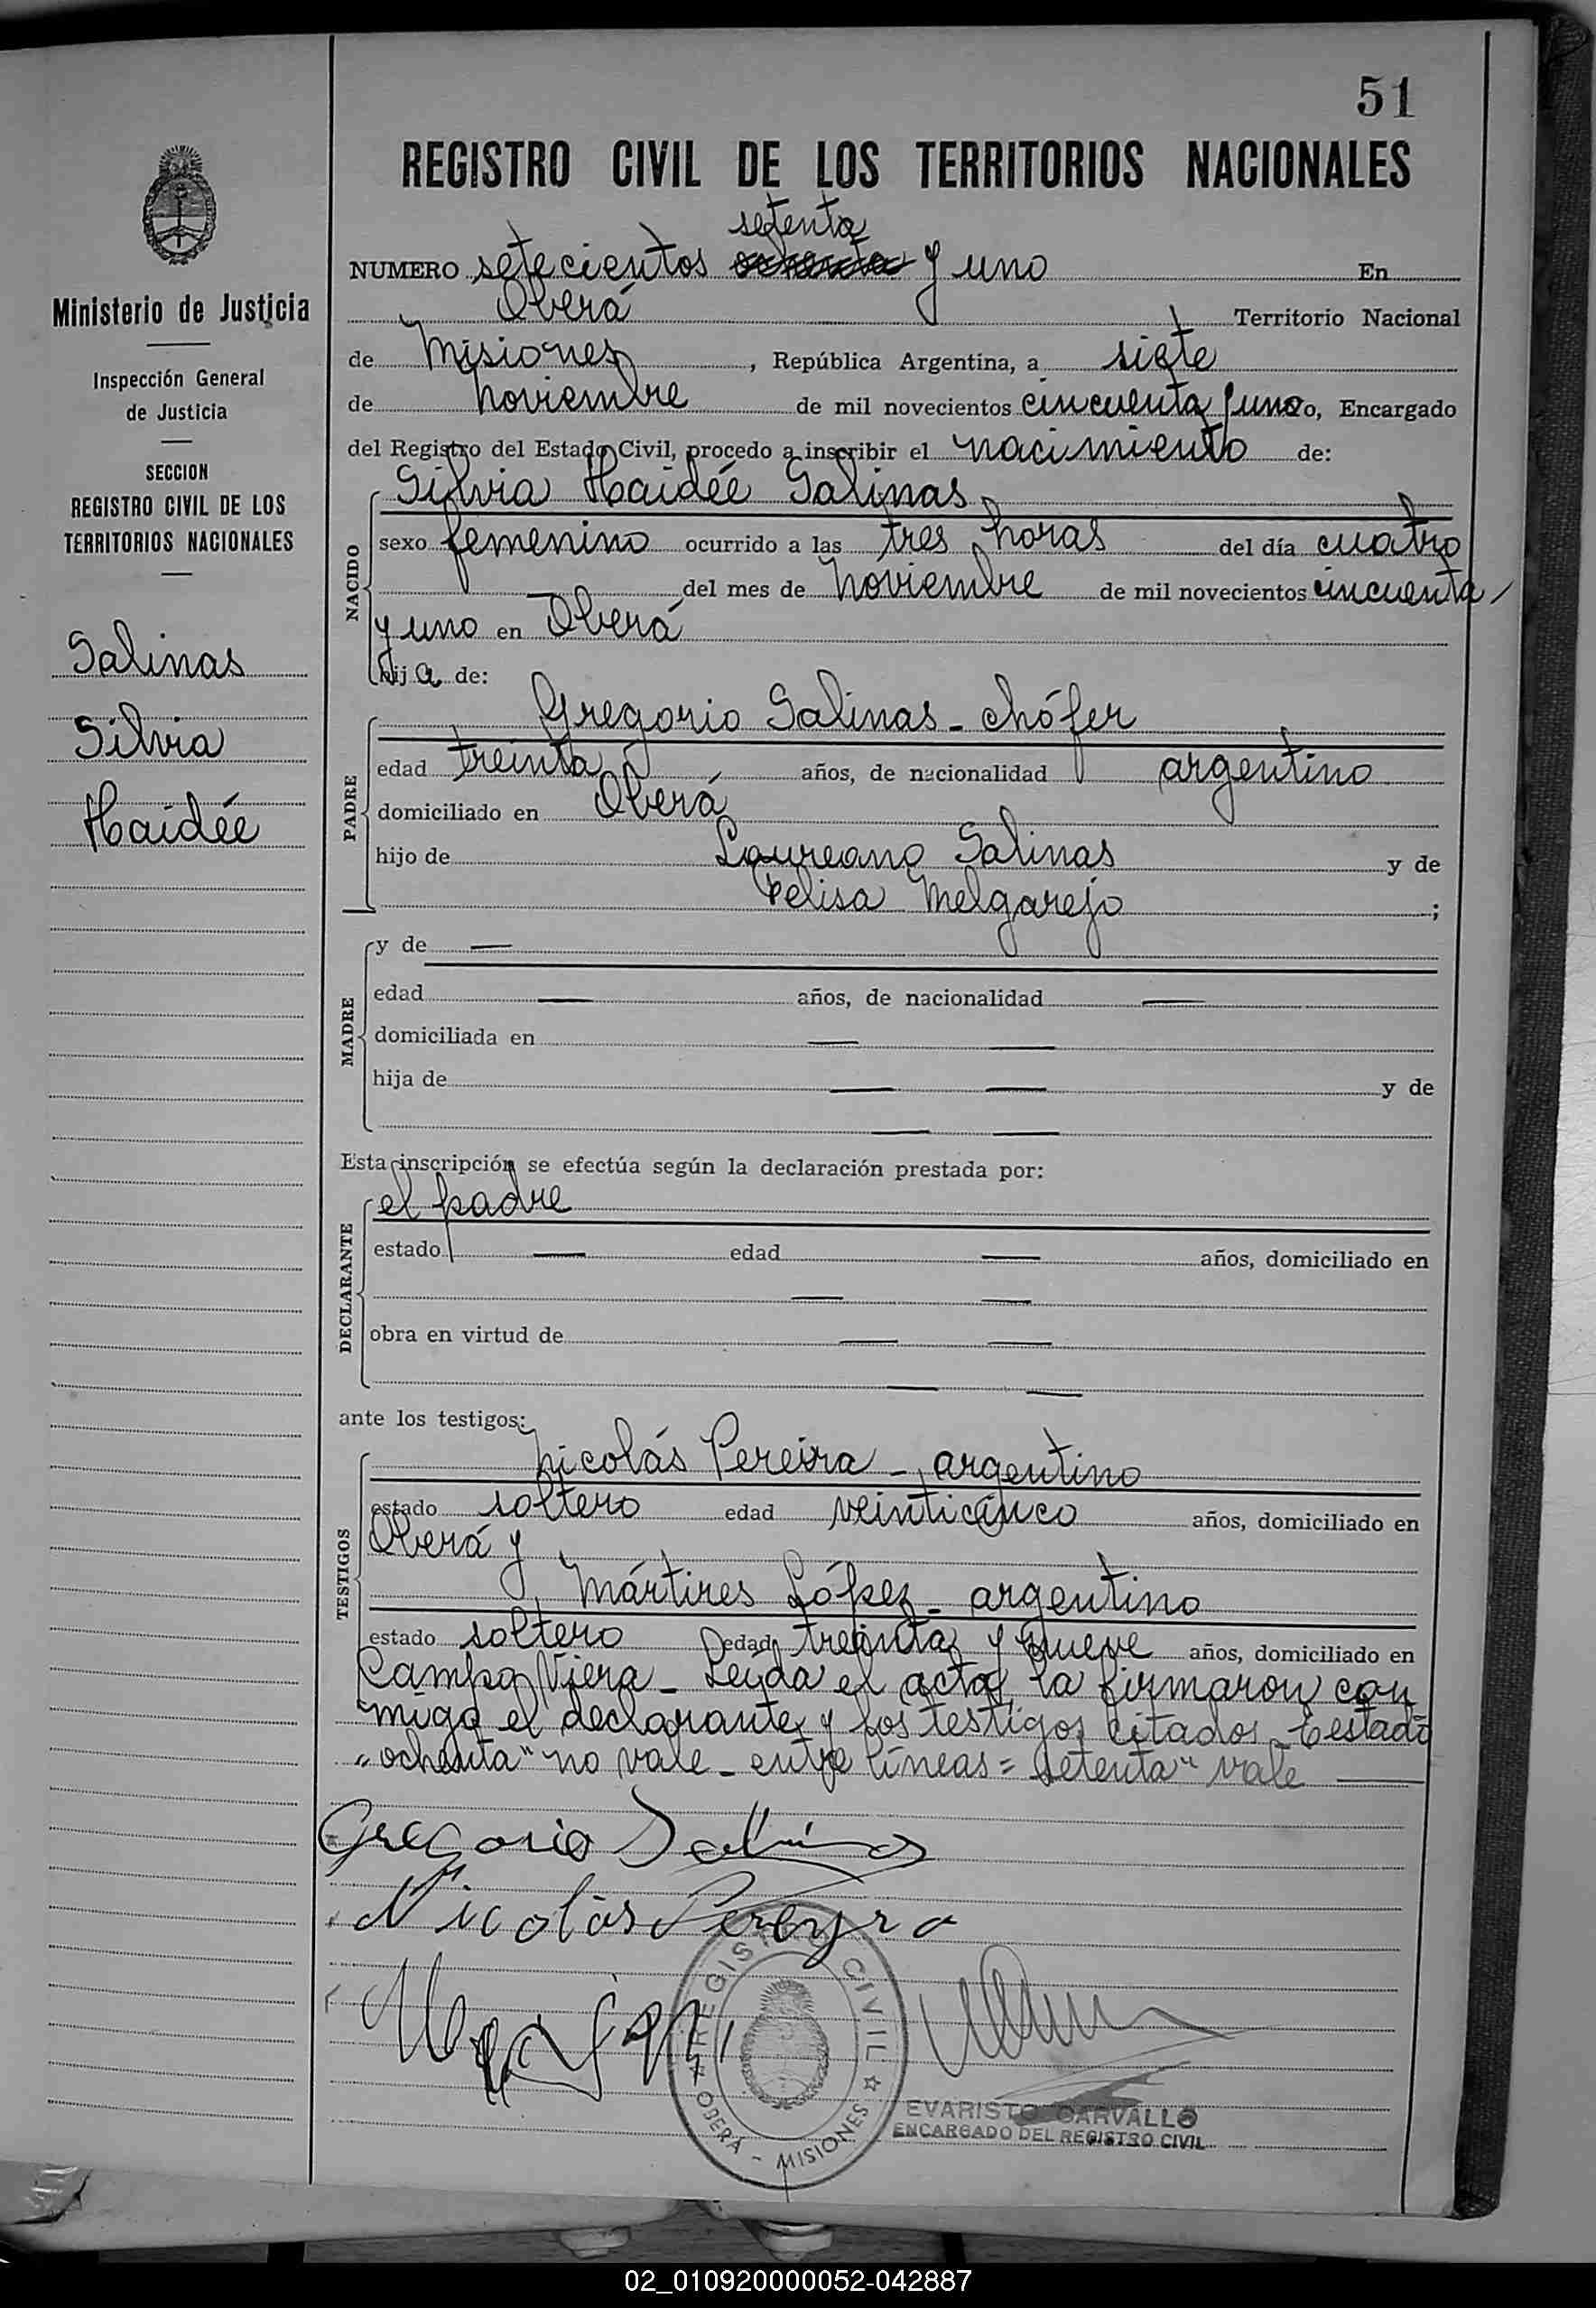 51
REGISTRO CIVIL DE LOS TERRITORIOS NACIONALES
setenta
NUMERO setecientos ochenta y uno En
Oberá Territorio Nacional
de Misiones, República Argentina, a siete
de Noviembre de mil novecientos cincuenta y uno, Encargado
del Registro del Estado Civil, procedo a inscribir el nacimiento de:
NACIDO
Silvia Haidée Salinas
sexo femenino ocurrido a las tres horas del día cuatro
del mes de Noviembre de mil novecientos cincuenta
y uno en Oberá
hija de:
PADRE
Gregorio Salinas - chófer
edad treinta años, de nacionalidad argentino
domiciliado en Oberá
hijo de Laureano Salinas y de
Felisa Melgarejo ;
MADRE
y de —
edad — años, de nacionalidad —
domiciliada en — —
hija de — — y de
— —
Esta inscripción se efectúa según la declaración prestada por:
DECLARANTE
el padre
estado — edad — años, domiciliado en
— —
obra en virtud de — —
— —
ante los testigos:
TESTIGOS
Nicolás Pereira - argentino
estado soltero edad veinticinco años, domiciliado en
Oberá y
Mártires López - argentino
estado soltero edad treinta y nueve años, domiciliado en
Campo Viera - Leída el acta, la firmaron con
migo el declarante y los testigos citados - Testado
"ochenta" no vale - entre líneas = setenta" vale —
Gregorio Salinas
Nicolás Pereyra
REGISTRO CIVIL
OBERÁ - MISIONES
EVARISTO CARVALLO
ENCARGADO DEL REGISTRO CIVIL
Ministerio de Justicia
Inspección General
de Justicia
SECCION
REGISTRO CIVIL DE LOS
TERRITORIOS NACIONALES
Salinas
Silvia
Haidée
02_010920000052-042887